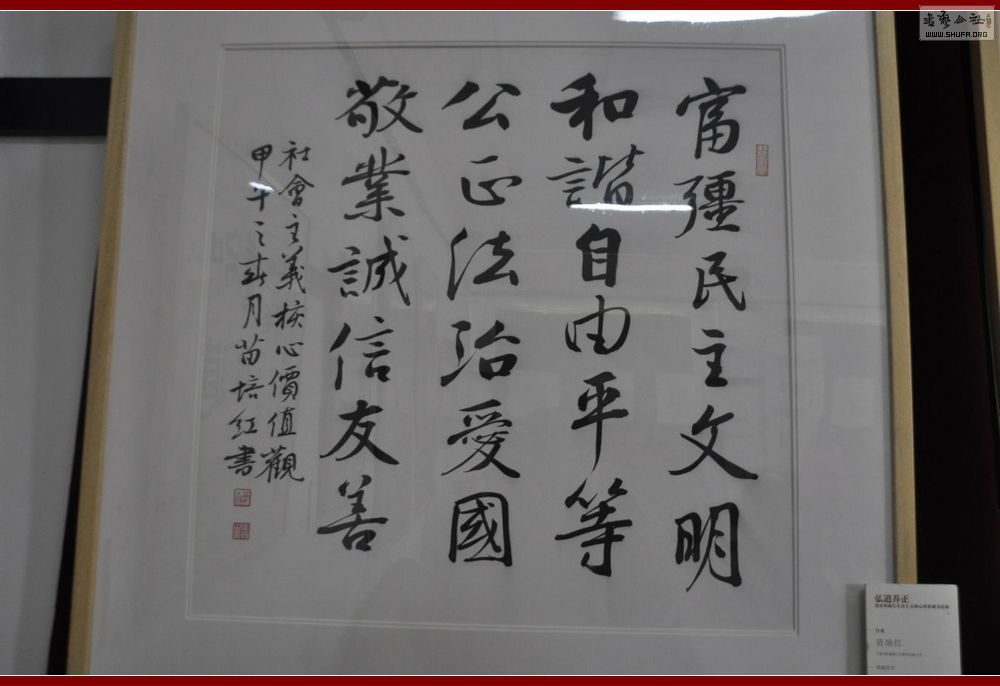 富彊民主文明
和諧自由平等
公正法治愛國
敬業誠信友善
社會主義核心價值觀
甲午之春月苗培红書
书艺公社
WWW.SHUFA.ORG
弘道养正
作者
苗培红